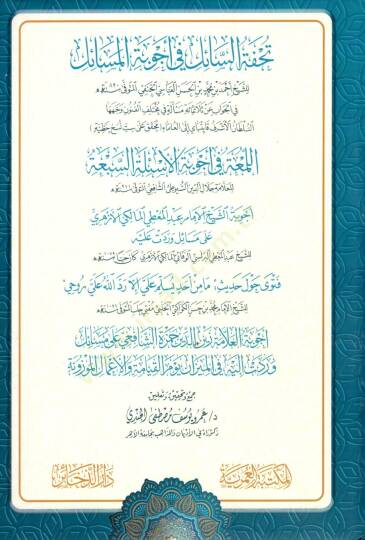 تحفة السائل في أجوبة المسائل
للشيخ أحمد بن محمد بن الحسن العباسي الحنفي المتوفى سنة
في الجواب عن ثلاثمائة مسألة في مختلف الفنون وجهها
السلطان الأشرف قايتباي إلى العلماء (محقق على ست نسخ خطية)
اللمعة في أجوبة الأسئلة السبعة
للعلامة جلال الدين السيوطي الشافعي المتوفى سنة
أجوبة الشيخ الإمام عبد المعطي المالكي الأزهري
على مسائل وردت عليه
للشيخ عبد المعطي المالكي الأزهري كان حيا سنة
فتوى حول حديث: ما من أحد يسلم علي إلا رد الله علي روحي
للشيخ الإمام محمد بن حسن الكواكبي الحنفي مفتي حلب المتوفى سنة
أجوبة العلامة زين الدين حمزة الشافعي على مسائل
وردت إليه في الميزان يوم القيامة والأعمال الموزونة
جمع وتحقيق وتعليق
د/ عمرو يوسف مصطفى الجندي
دكتوراه في الأديان والمذاهب بجامعة الأزهر
المكتبة العمرية
دار الذخائر